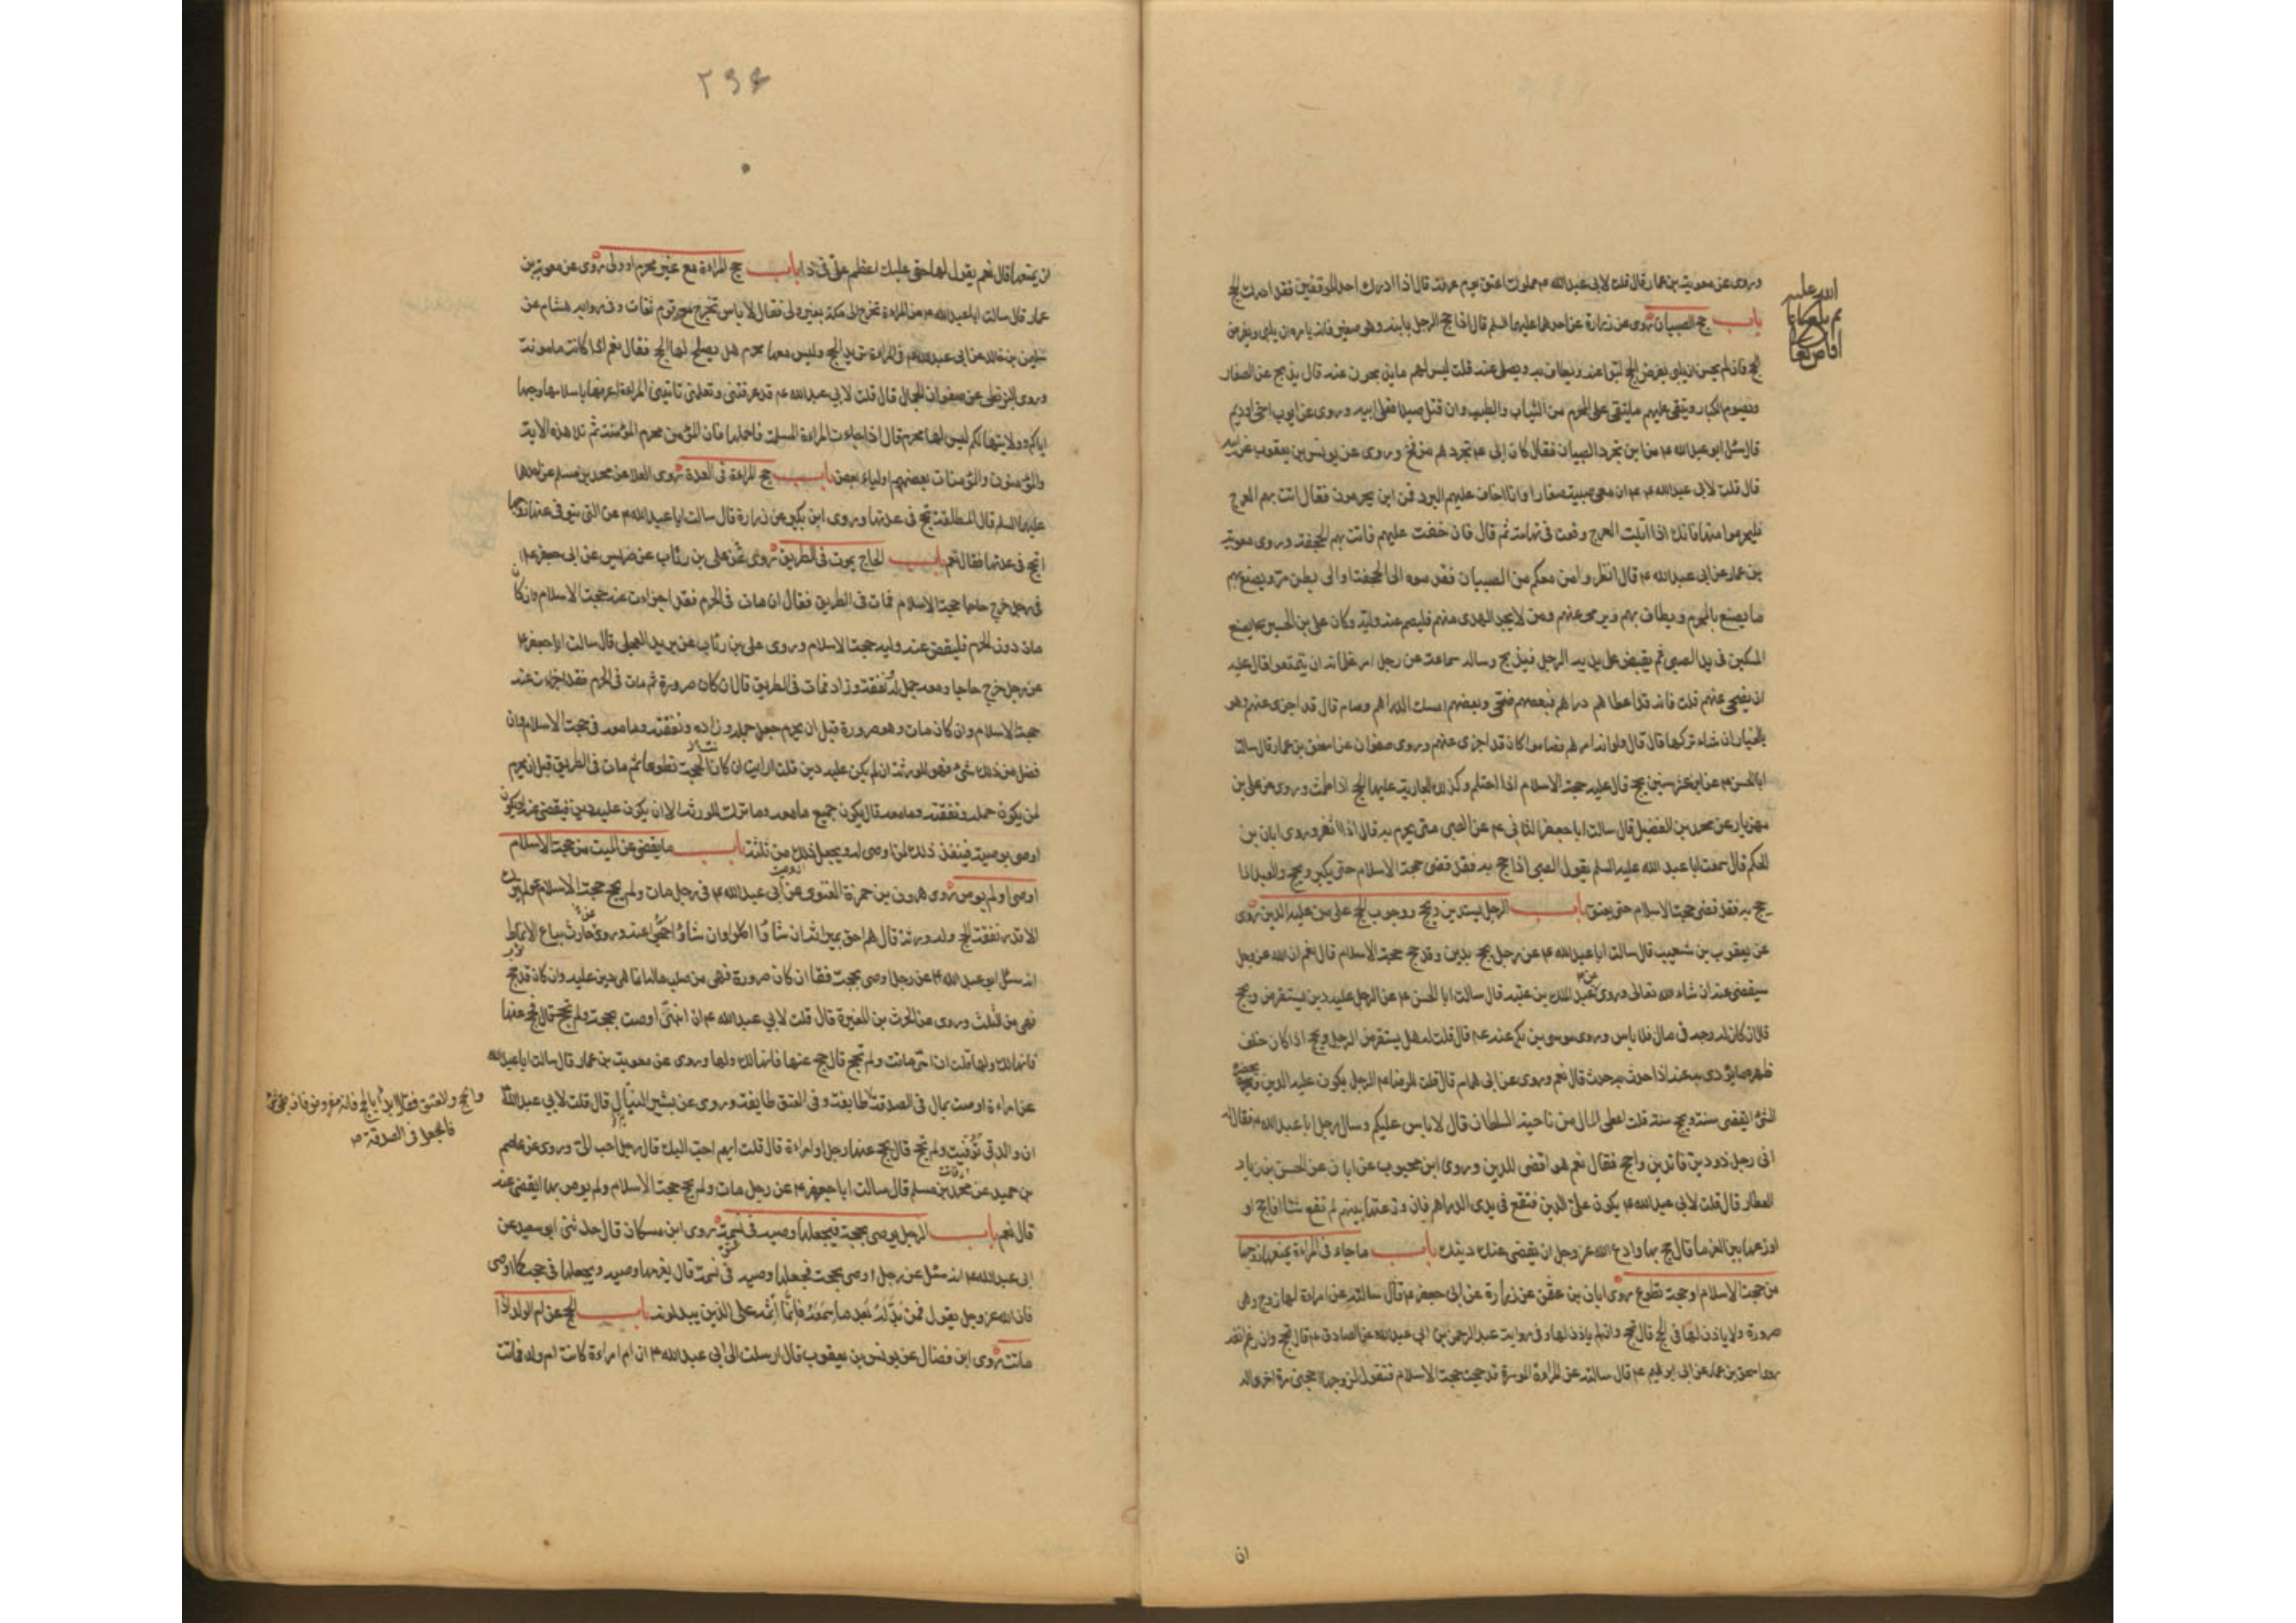 وروى عن معوية بن عمار قال قلت لابي عبد الله ع مملوك اعتق يوم عرفة قال اذا ادرك احد الموقفين فقد ادرك الحج
باب حج الصبيان روى عن زرارة عن احدهما عليهما السلم قال اذا حج الرجل بابنه وهو صغير فانه يامره ان يلبى ويفرض
الحج فان لم يحسن ان يلبى لبى عنه ويطاف به ويصلى عنه قلت ليس لهم ما يذبحون عنه قال يذبح عن الصغار
ويصوم الكبار ويتقى عليهم ما يتقى على المحرم من الثياب والطيب وان قتل صيدا فعلى ابيه وروى عن ايوب اخى اديم
قال سئل ابو عبد الله ع من اين تجرد الصبيان فقال كان ابى ع يجردهم من فخ وروى عن يونس بن يعقوب عن ابيه
قال قلت لابى عبد الله ع ان معى صبية صغارا وانا اخاف عليهم البرد فمن اين يحرمون فقال ائت بهم العرج
فليحرموا منها فانك اذا اتيت العرج وقعت فى تهامة ثم قال فان خفت عليهم فائت بهم الجحفة وروى معوية
بن عمار عن ابى عبد الله ع قال انظروا من معكم من الصبيان فقدموه الى الجحفة او الى بطن مر ويصنع بهم
ما يصنع بالمحرم ويطاف بهم ويرمى عنهم ومن لا يجد الهدى منهم فليصم عنه وليه وكان على بن الحسين ع يضع
السكين فى يد الصبى ثم يقبض على يديه الرجل فيذبح وساله سماعة عن رجل امر غلمانه ان يتمتعوا قال عليه
ان يضحى عنهم قلت فانه اعطاهم دراهم فبعضهم ضحى وبعضهم امسك الدراهم وصام قال قد اجزى عنهم وهو
بالخيار ان شاء تركها قال قال ولو انه امرهم فصاموا كان قد اجزى عنهم وروى صفوان عن اسحق بن عمار قال سالت
ابا الحسن ع عن ابن عشر سنين يحج قال عليه حجة الاسلام اذا احتلم وكذلك الجارية عليها الحج اذا طمثت وروى عن على بن
مهزيار عن محمد بن الفضيل قال سالت ابا جعفر الثانى ع عن الصبى متى يحرم به قال اذا اثغر وروى ابان بن
الحكم قال سمعت ابا عبد الله عليه السلم يقول الصبى اذا حج به فقد قضى حجة الاسلام حتى يكبر ويحج والعبد اذا
حج به فقد قضى حجة الاسلام حتى يعتق باب الرجل يستدين ويحج ووجوب الحج على من عليه الدين روى
عن يعقوب بن شعيب قال سالت ابا عبد الله ع عن رجل يحج بدين وقد حج حجة الاسلام قال نعم ان الله عز وجل
سيقضى عنه ان شاء الله تعالى وروى عن عبد الملك بن عتبة قال سالت ابا الحسن ع عن الرجل عليه دين يستقرض ويحج
قال ان كان له وجه فى مال فلا باس وروى موسى بن بكر عنه ع قال قلت له هل يستقرض الرجل ويحج اذا كان خلف
ظهره ما يؤدى به عنه اذا حدث به حدث قال نعم وروى عن ابى همام قال قلت للرضا ع الرجل يكون عليه الدين ويحضره
الشئ ايقضى سنة ويحج سنة قلت اعطى المال من ناحية السلطان قال لا باس عليكم وسال رجل ابا عبد الله ع فقال له
انى رجل ذو دين فاتدين واحج فقال نعم هو اقضى للدين وروى ابن محبوب عن ابان عن الحسن بن زياد
العطار قال قلت لابى عبد الله ع يكون على الدين فتقع فى يدى الدراهم فان وزعتها بينهم لم تقع شيئا افاحج او
اوزعها بين الغرما قال حج بها وادع الله عز وجل ان يقضى عنك دينك باب ما جاء فى المراة يمنعها زوجها
من حجة الاسلام او حجة تطوع روى ابان بن عثمن عن زرارة عن ابى جعفر ع قال سالته عن امراة لها زوج وهى
صرورة ولا ياذن لها فى الحج قال تحج وان لم ياذن لها وفى رواية عبد الرحمن بن ابى عبد الله عن الصادق ع قال تحج وان رغم انفه
روى اسحق بن عمار عن ابى ابرهيم ع قال سالته عن المراة الموسرة قد حجت حجة الاسلام فتقول لزوجها احجنى مرة اخرى اله
ان
٢٩۴
ان يمنعها قال نعم يقول لها حقى عليك اعظم من حقك على فى ذا باب حج المراءة مع غير محرم او ولى روى عن معوية بن
عمار قال سالت ابا عبد الله ع عن المراءة تخرج الى مكة بغير ولى فقال لا باس تخرج مع قوم ثقات وفى رواية هشام عن
سليمن بن خالد عن ابى عبد الله ع فى المراءة تريد الحج وليس معها محرم هل يصلح لها الحج فقال نعم اذا كانت مامونة
وروى البزنطى عن صفوان الجمال قال قلت لابى عبد الله ع قد عرفتنى بعملى تاتينى المراءة اعرفها باسلامها وحبها
اياكم وولايتها لكم ليس لها محرم قال اذا جاءت المراءة المسلمة فاحملها فان المؤمن محرم المؤمنة ثم تلا هذه الاية
والمؤمنون والمؤمنات بعضهم اولياء بعض باب حج المراءة فى العدة روى العلا عن محمد بن مسلم عن احدهما
عليهما السلم قال المطلقة تحج فى عدتها وروى ابن بكير عن زرارة قال سالت ابا عبد الله ع عن التى يتوفى عنها زوجها
اتحج فى عدتها فقال نعم باب الحاج يموت فى الطريق روى عن على بن رئاب عن ضريس عن ابى جعفر ع
فى رجل خرج حاجا حجة الاسلام فمات فى الطريق فقال ان مات فى الحرم فقد اجزات عنه حجة الاسلام وان كان
مات دون الحرم فليقض عنه وليه حجة الاسلام وروى على بن رئاب عن بريد العجلى قال سالت ابا جعفر ع
عن رجل خرج حاجا ومعه جمل له نفقة وزاد فمات فى الطريق قال ان كان صرورة ثم مات فى الحرم فقد اجزات عنه
حجة الاسلام وان كان مات وهو صرورة قبل ان يحرم جعل جمله وزاده ونفقته وما معه فى حجة الاسلام وان
فضل من ذلك شئ فهو للورثة ان لم يكن عليه دين قلت ارايت ان كان الحجة تطوعا ثم مات فى الطريق قبل ان يحرم
لمن يكون جمله ونفقته وما معه قال يكون جميع ما معه وما ترك للورثة الا ان يكون عليه دين فيقضى عنه او يكون
اوصى بوصية فينفذ ذلك لمن اوصى له ويجعل ذلك من ثلثه باب ما يقضى عن الميت من حجة الاسلام
اوصى او لم يوص روى هرون بن حمزة الغنوى عن ابى عبد الله ع فى رجل مات ولم يحج حجة الاسلام ولم يترك
الا قدر نفقة الحج وله ورثة قال هم احق بميراثه ان شاؤا اكلوا وان شاؤا احجوا عنه وروى عن حارث بياع الانماط
انه سئل ابو عبد الله ع عن رجل اوصى بحجة فقال ان كان صرورة فهى من صلب ماله انما هى دين عليه وان كان قد حج
فهى من الثلث وروى عن الحرث بن المغيرة قال قلت لابى عبد الله ع ان ابنتى اوصت بحجة ولم تحج قال فحج عنها
فانها لك ولها قلت ان امى ماتت ولم تحج قال حج عنها فانها لك ولها وروى عن معوية بن عمار قال سالت ابا عبد الله ع
عن امراءة اوصت بمال فى الصدقة طايفة وفى العتق طايفة وروى عن بشير النبال قال قلت لابى عبد الله ع
ان والدتى توفيت ولم تحج قال يحج عنها رجل او امراءة قال قلت ايهم احب اليك قال رجل احب الى وروى عن عاصم
بن حميد عن محمد بن مسلم قال سالت ابا جعفر ع عن رجل مات ولم يحج حجة الاسلام ولم يوص بها ايقضى عنه
قال نعم باب الرجل يوصى بحجة فيجعلها وصيه فى نسمة روى ابن مسكان قال حدثنى ابو سعيد عن
ابى عبد الله ع انه سئل عن رجل اوصى بحجة فجعلها وصيه فى نسمة قال يغرمها وصيه ويجعلها فى حجة كما اوصى
فان الله عز وجل يقول فمن بدله بعد ما سمعه فانما اثمه على الذين يبدلونه باب الحج عن ام الولد اذا
ماتت روى ابن فضال عن يونس بن يعقوب قال ارسلت الى ابى عبد الله ع ان ام امراءة كانت ام ولد فماتت
والحج والعتق فقال ابدأ بالحج فانه مفروض فان بقى شئ
فاجعله فى الصدقة